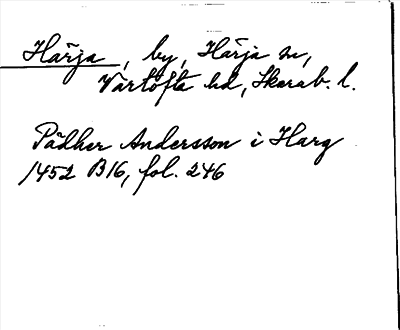 Härja, by, Härja sn,
Vartofta hd, Skarab. l.
Pädher Andersson i Harg
1452 B16, fol. 246